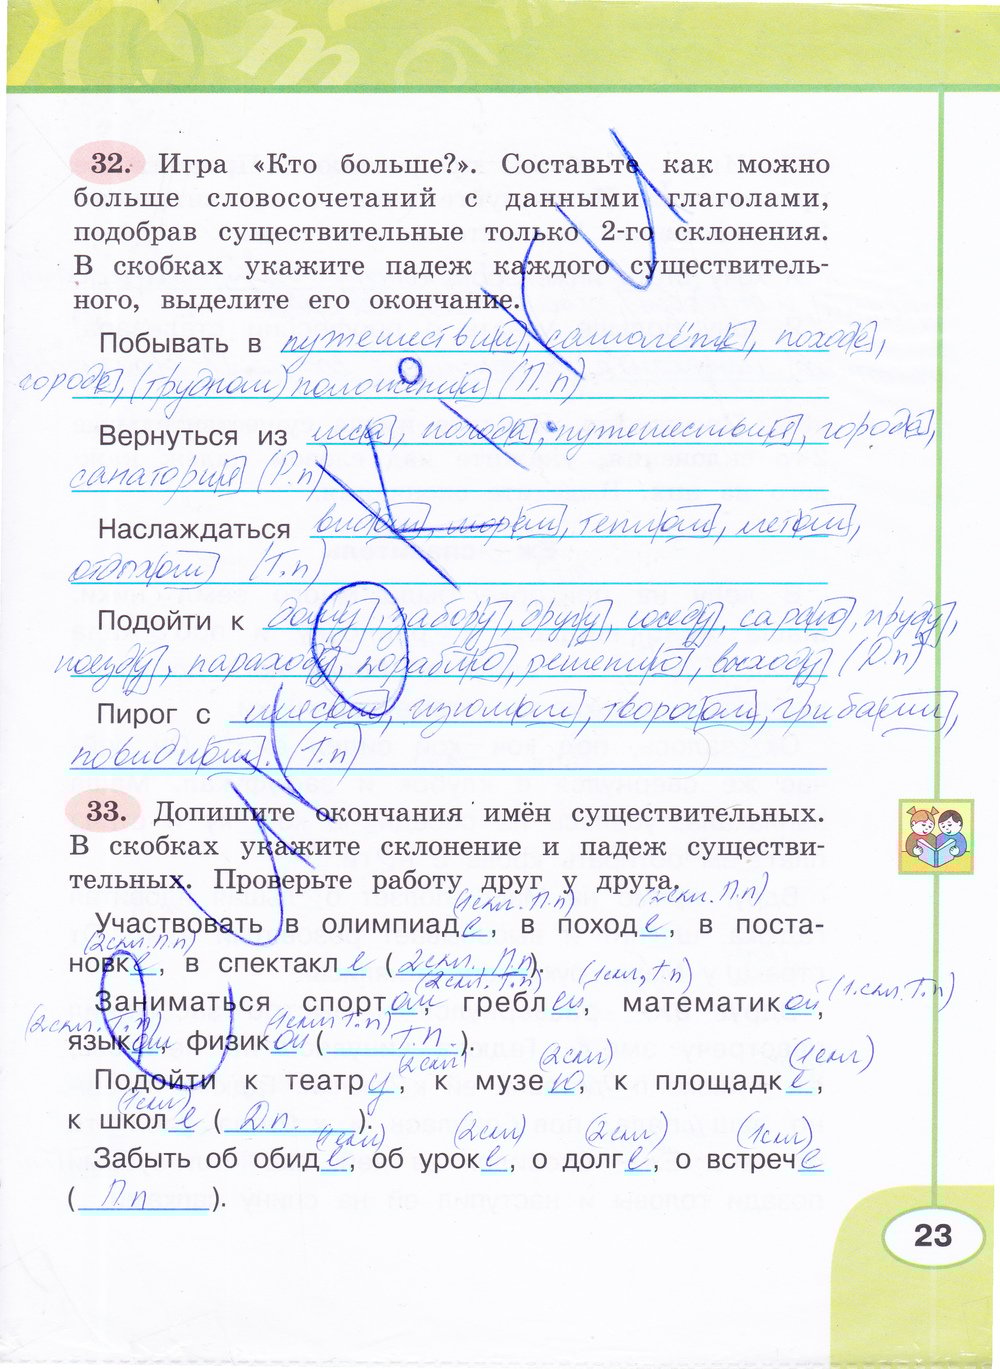 32. Игра «Кто больше?». Составьте как можно
больше словосочетаний с данными глаголами,
подобрав существительные только 2-го склонения.
В скобках укажите падеж каждого существитель-
ного, выделите его окончание.
Побывать в путешествии, самолёте, походе,
городе, (трудном) положении (П.п)
Вернуться из леса, похода, путешествия, города,
санатория (Р.п)
Наслаждаться видом, морем, теплом, летом,
отдыхом (Т.п)
Подойти к дому, забору, другу, соседу, сараю, пруду,
поезду, параходу, кораблю, решению, выходу (Д.п)
Пирог с мясом, изюмом, творогом, грибами,
повидлом. (Т.п)
33. Допишите окончания имён существительных.
В скобках укажите склонение и падеж существи-
тельных. Проверьте работу друг у друга.
(1скл. П.п) (2скл. П.п)
Участвовать в олимпиаде, в походе, в поста-
(2скл. П.п)
новке, в спектакле (2скл. П.п).
(2скл. Т.п) (1скл, Т.п)
Заниматься спортом, греблей, математикой, (1.скл. Т.п)
(2скл. Т.п) (1скл Т.п)
языком, физикой (Т.п.).
(2скл) (2скл) (1скл)
Подойти к театру, к музею, к площадке,
(1скл)
к школе (Д.п.).
(1скл) (2скл) (2скл) (1скл)
Забыть об обиде, об уроке, о долге, о встрече
(П.п).
23